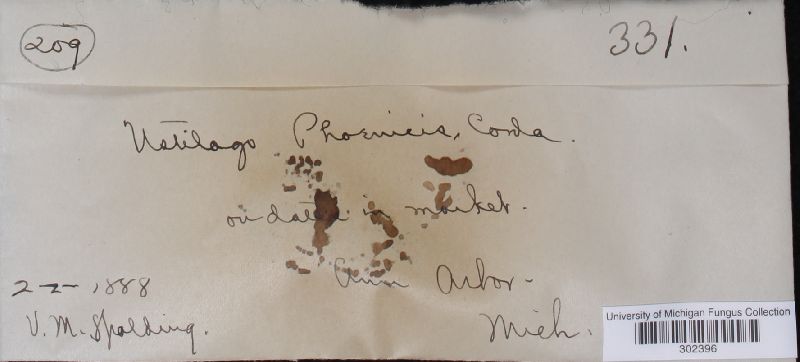 209
331.
Ustilago Phoenicis, Corda.
on dates in market.
Ann Arbor-
Mich.
2-2-1888
V. M. Spalding.
University of Michigan Fungus Collection
302396